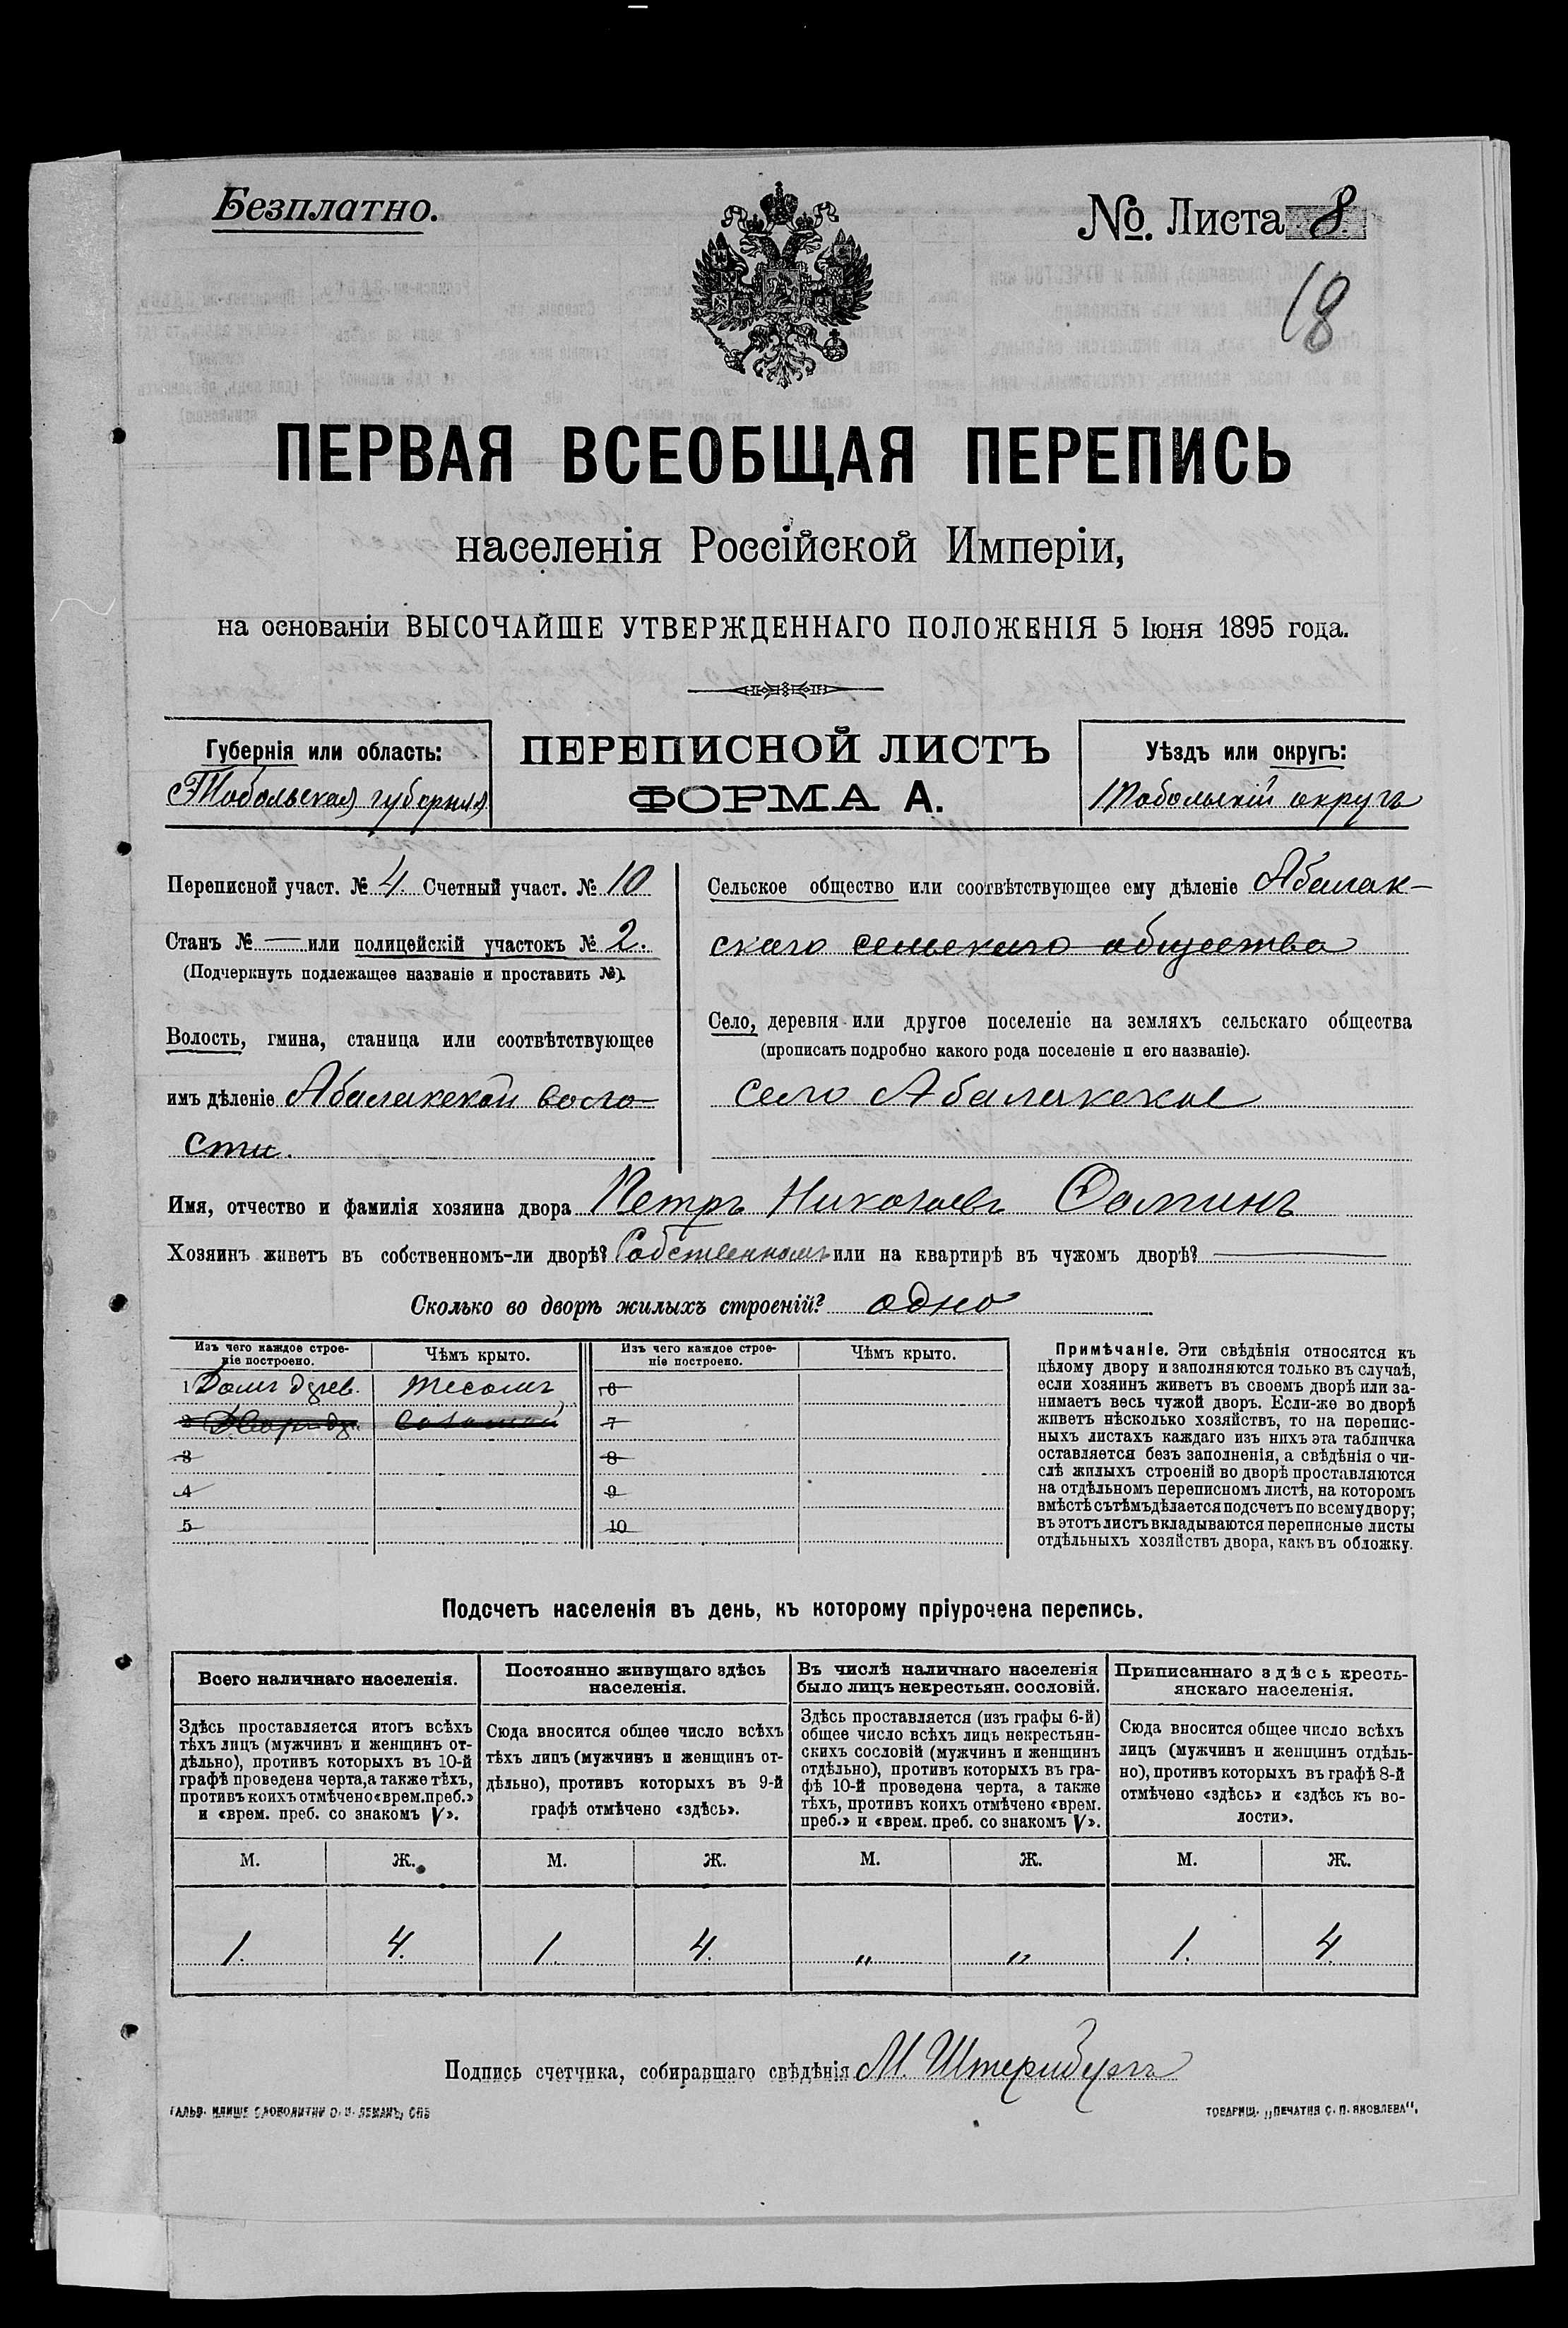 Безплатно.
№. Листа 8.
18
ПЕРВАЯ ВСЕОБЩАЯ ПЕРЕПИСЬ
населенія Россійской Имперіи,
на основаніи ВЫСОЧАЙШЕ УТВЕРЖДЕННАГО ПОЛОЖЕНІЯ 5 Іюня 1895 года.
Губернія или область:
Тобольская губернія
ПЕРЕПИСНОЙ ЛИСТЪ
ФОРМА А.
Уѣздъ или округъ:
Тобольскій округъ
Переписной участ. № 4. Счетный участ. № 10
Станъ № — или полицейскій участокъ № 2.
(Подчеркнуть подлежащее названіе и проставить №).
Волость, гмина, станица или соотвѣтствующее
имъ дѣленіе Абалакской воло-
сти.
Сельское общество или соотвѣтствующее ему дѣленіе Абалак-
скаго сельскаго общества
Село, деревня или другое поселеніе на земляхъ сельскаго общества
(прописать подробно какого рода поселеніе и его названіе).
село Абалакское
Имя, отчество и фамилія хозяина двора Петръ Николаевъ Фоминъ
Хозяинъ живетъ въ собственномъ-ли дворѣ? Собственномъ или на квартирѣ въ чужомъ дворѣ? —
Сколько во дворѣ жилыхъ строеній? одно
Изъ чего каждое строе-
ніе построено.
Чѣмъ крыто.
Изъ чего каждое строе-
ніе построено.
Чѣмъ крыто.
1 Домъ дерев. тесомъ 6
2 7
3 8
4 9
5 10
Примѣчаніе. Эти свѣдѣнія относятся къ
цѣлому двору и заполняются только въ случаѣ,
если хозяинъ живетъ въ своемъ дворѣ или за-
нимаетъ весь чужой дворъ. Если-же во дворѣ
живетъ нѣсколько хозяйствъ, то на перепис-
ныхъ листахъ каждаго изъ нихъ эта табличка
оставляется безъ заполненія, а свѣдѣнія о чи-
слѣ жилыхъ строеній во дворѣ проставляются
на отдѣльномъ переписномъ листѣ, на которомъ
вмѣстѣ сътѣмъ дѣлается подсчетъ по всему двору;
въ этотъ листъ вкладываются переписные листы
отдѣльныхъ хозяйствъ двора, какъ въ обложку.
Подсчетъ населенія въ день, къ которому пріурочена перепись.
Всего наличнаго населенія.
Здѣсь проставляется итогъ всѣхъ
тѣхъ лицъ (мужчинъ и женщинъ от-
дѣльно), противъ которыхъ въ 10-й
графѣ проведена черта, а также тѣхъ,
противъ коихъ отмѣчено «врем.преб.»
и «врем. преб. со знакомъ V».
Постоянно живущаго здѣсь
населенія.
Сюда вносится общее число всѣхъ
тѣхъ лицъ (мужчинъ и женщинъ от-
дѣльно), противъ которыхъ въ 9-й
графѣ отмѣчено «здѣсь».
Въ числѣ наличнаго населенія
было лицъ некрестьян. сословій.
Здѣсь проставляется (изъ графы 6-й)
общее число всѣхъ лицъ некрестьян-
скихъ сословій (мужчинъ и женщинъ
отдѣльно), противъ которыхъ въ гра-
фѣ 10-й проведена черта, а также
тѣхъ, противъ коихъ отмѣчено «врем.
преб.» и «врем. преб. со знакомъ V».
Приписаннаго здѣсь кресть-
янскаго населенія.
Сюда вносится общее число всѣхъ
лицъ (мужчинъ и женщинъ отдѣль-
но), противъ которыхъ въ графѣ 8-й
отмѣчено «здѣсь» и «здѣсь къ во-
лости».
М. Ж. М. Ж. М. Ж. М. Ж.
1. 4. 1. 4. „ „ 1. 4.
Подпись счетчика, собиравшаго свѣдѣнія М. Штернбергъ
СЛОВОЛИТНИ О. И. ЛЕМАНЪ, СПБ
ТОВАРИЩ. „ПЕЧАТНЯ С. П. ЯКОВЛЕВА“.